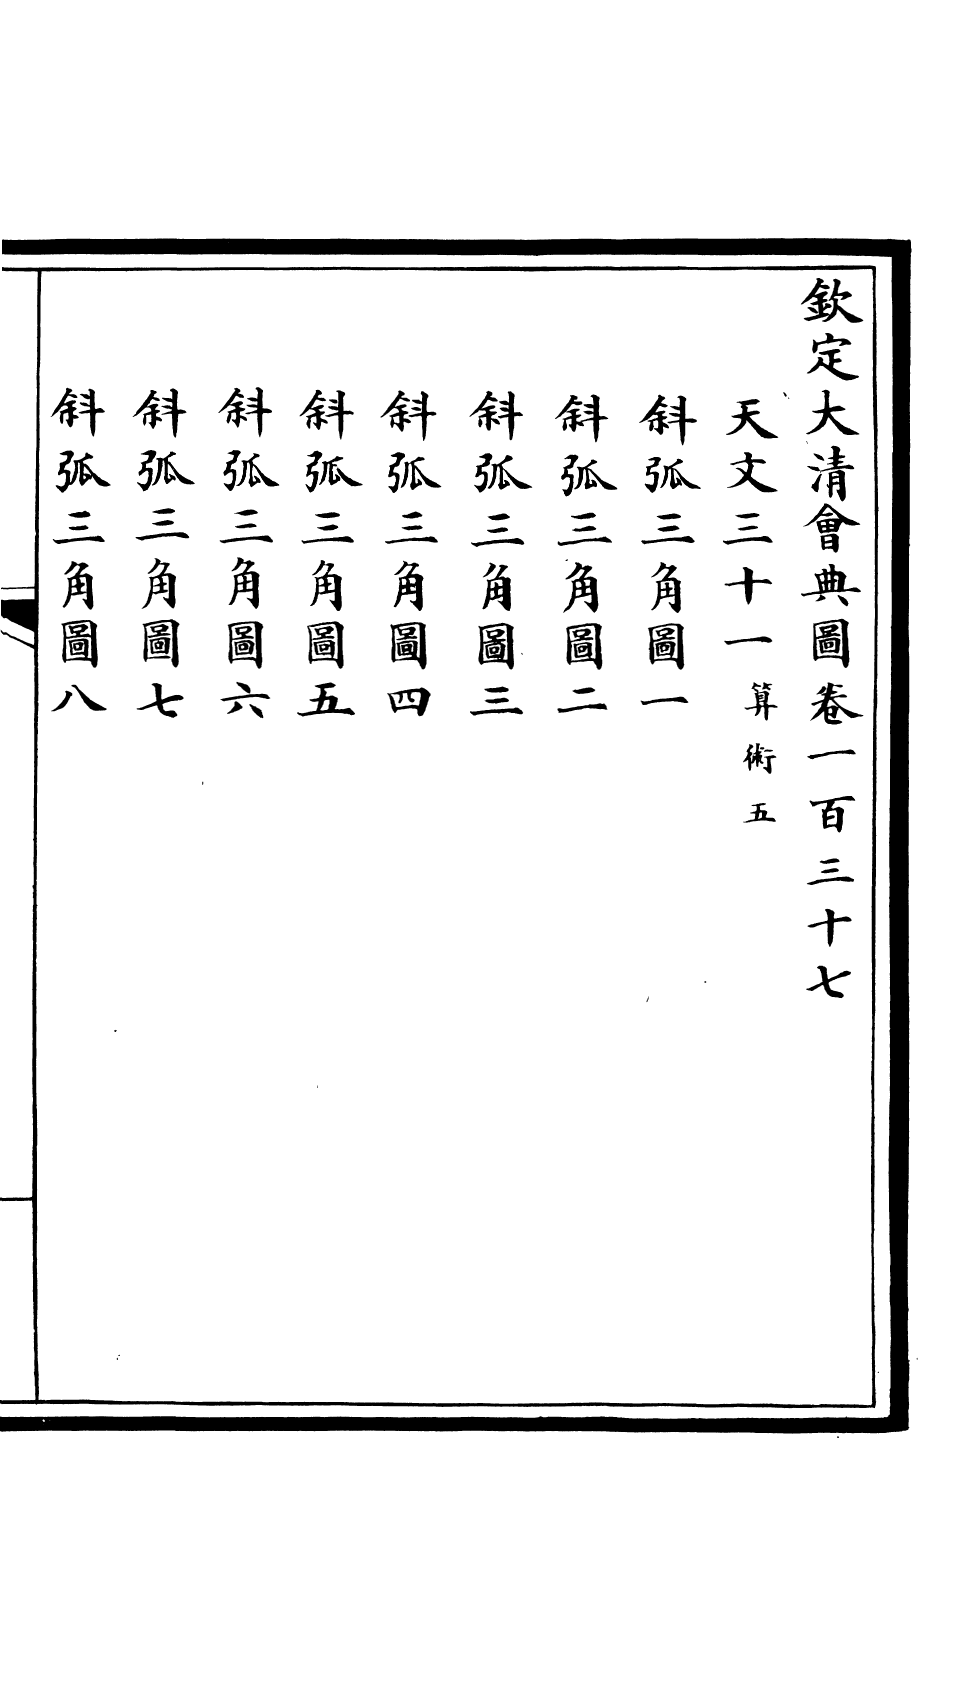 欽定大清會典圖卷一百三十七
天文三十一算術五
斜弧三角圖一
斜弧三角圖二
斜弧三角圖三
斜弧三角圖四
斜弧三角圖五
斜弧三角圖六
斜弧三角圖七
斜弧三角圖八